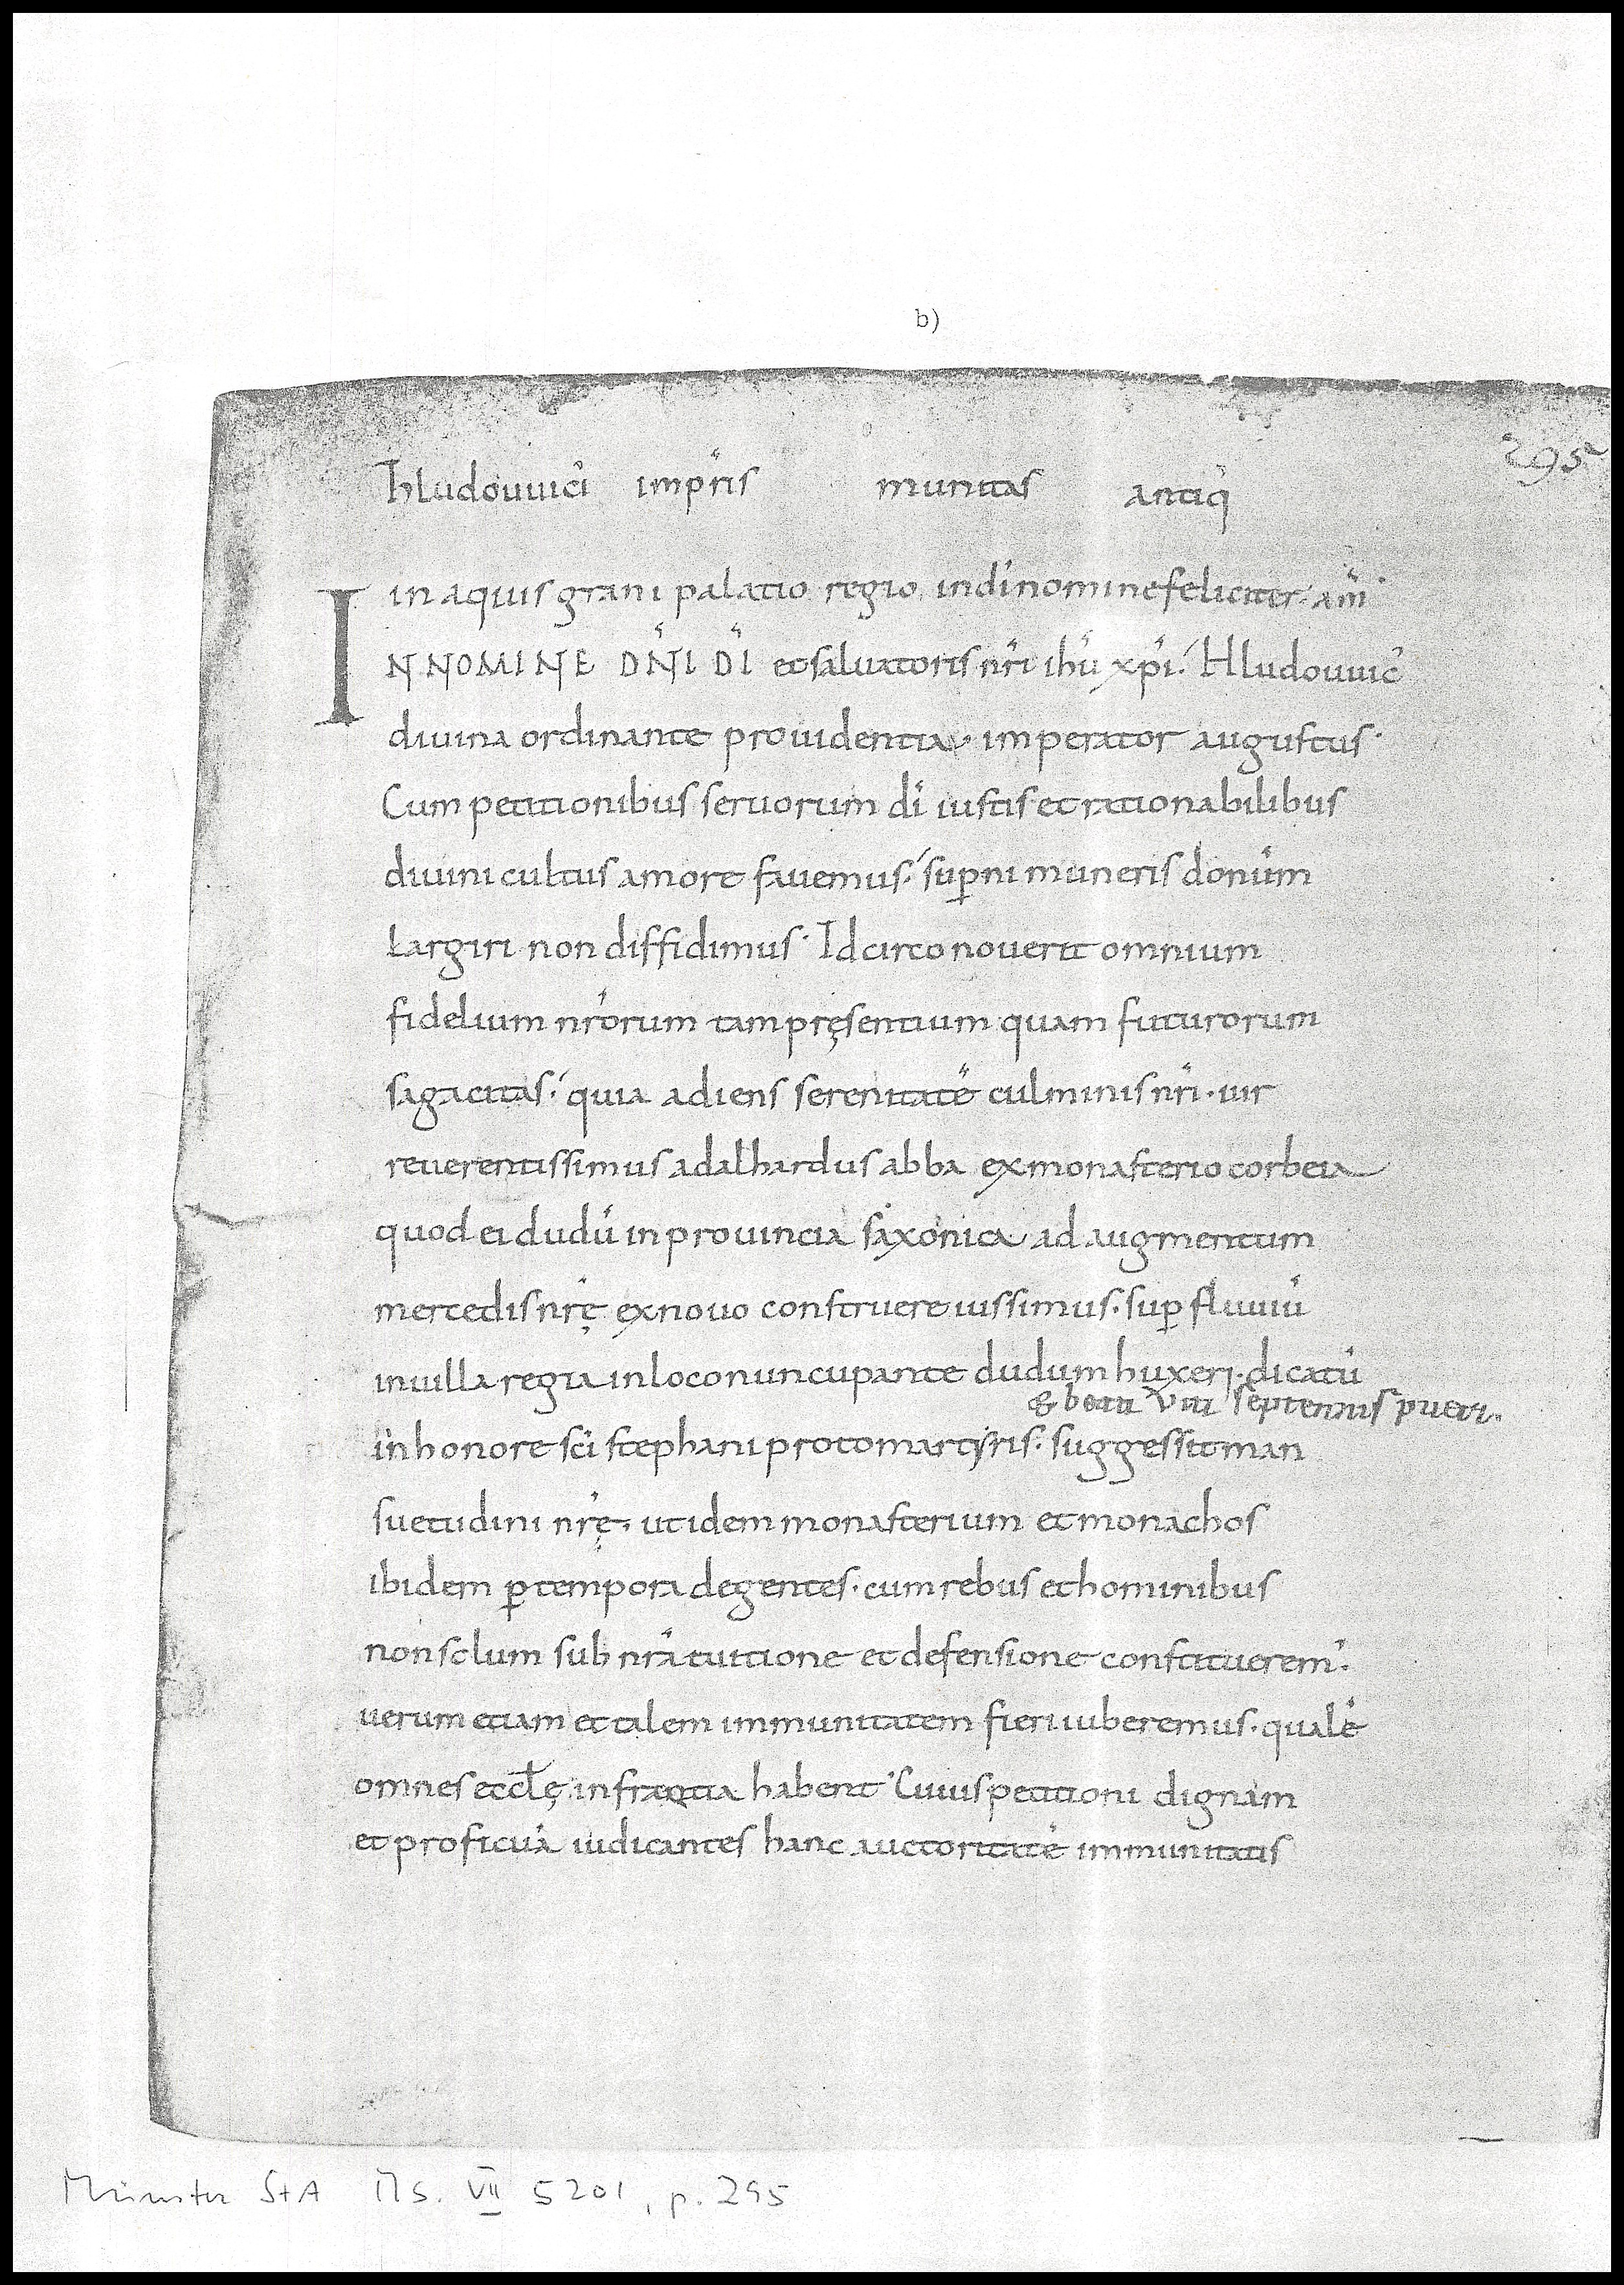 b)
295
hludouuici imp̄ris munitas antiq̄
in aquisgrani palatio regio in dī nomine feliciter am̄.
IN NOMINE DN̄I DĪ et saluatoris nr̄i ihū xp̄i. Hludouuic̄
diuina ordinante prouidentia. imperator augustus.
Cum petitionibus seruorum dī iustis et rationabilibus
diuini cultus amore fauemus. sup̱ni muneris donum
largiri non diffidimus. Idcirco nouerit omnium
fidelium nr̄orum tam pręsentium quam futurorum
sagacitas. quia adiens serenitatē culminis nr̄i. uir
reuerentissimus adalhardus abba ex monasterio corbeia
quod ei dudū in prouincia saxonica ad augmentum
mercedis nr̄ę ex nouo construere iussimus. sup̱ fluuiū
in uilla regia in loco nuncupante dudum huxeri. dicatū
& beati viti septennis pueri.
in honore sc̄i stephani protomartyris. suggessit man
suetudini nr̄ę. ut idem monasterium et monachos
ibidem p̱ tempora degentes. cum rebus et hominibus
non solum sub nr̄a tuitione et defensione constitueremꝰ.
uerum etiam et talem immunitatem fieri iuberemus. qualē
omnes eccl̄ę in frantia habent. Cuius petitioni dignam
et proficuā iudicantes hanc auctoritatē immunitatis
Münster StA Ms. VII 5201, p. 295